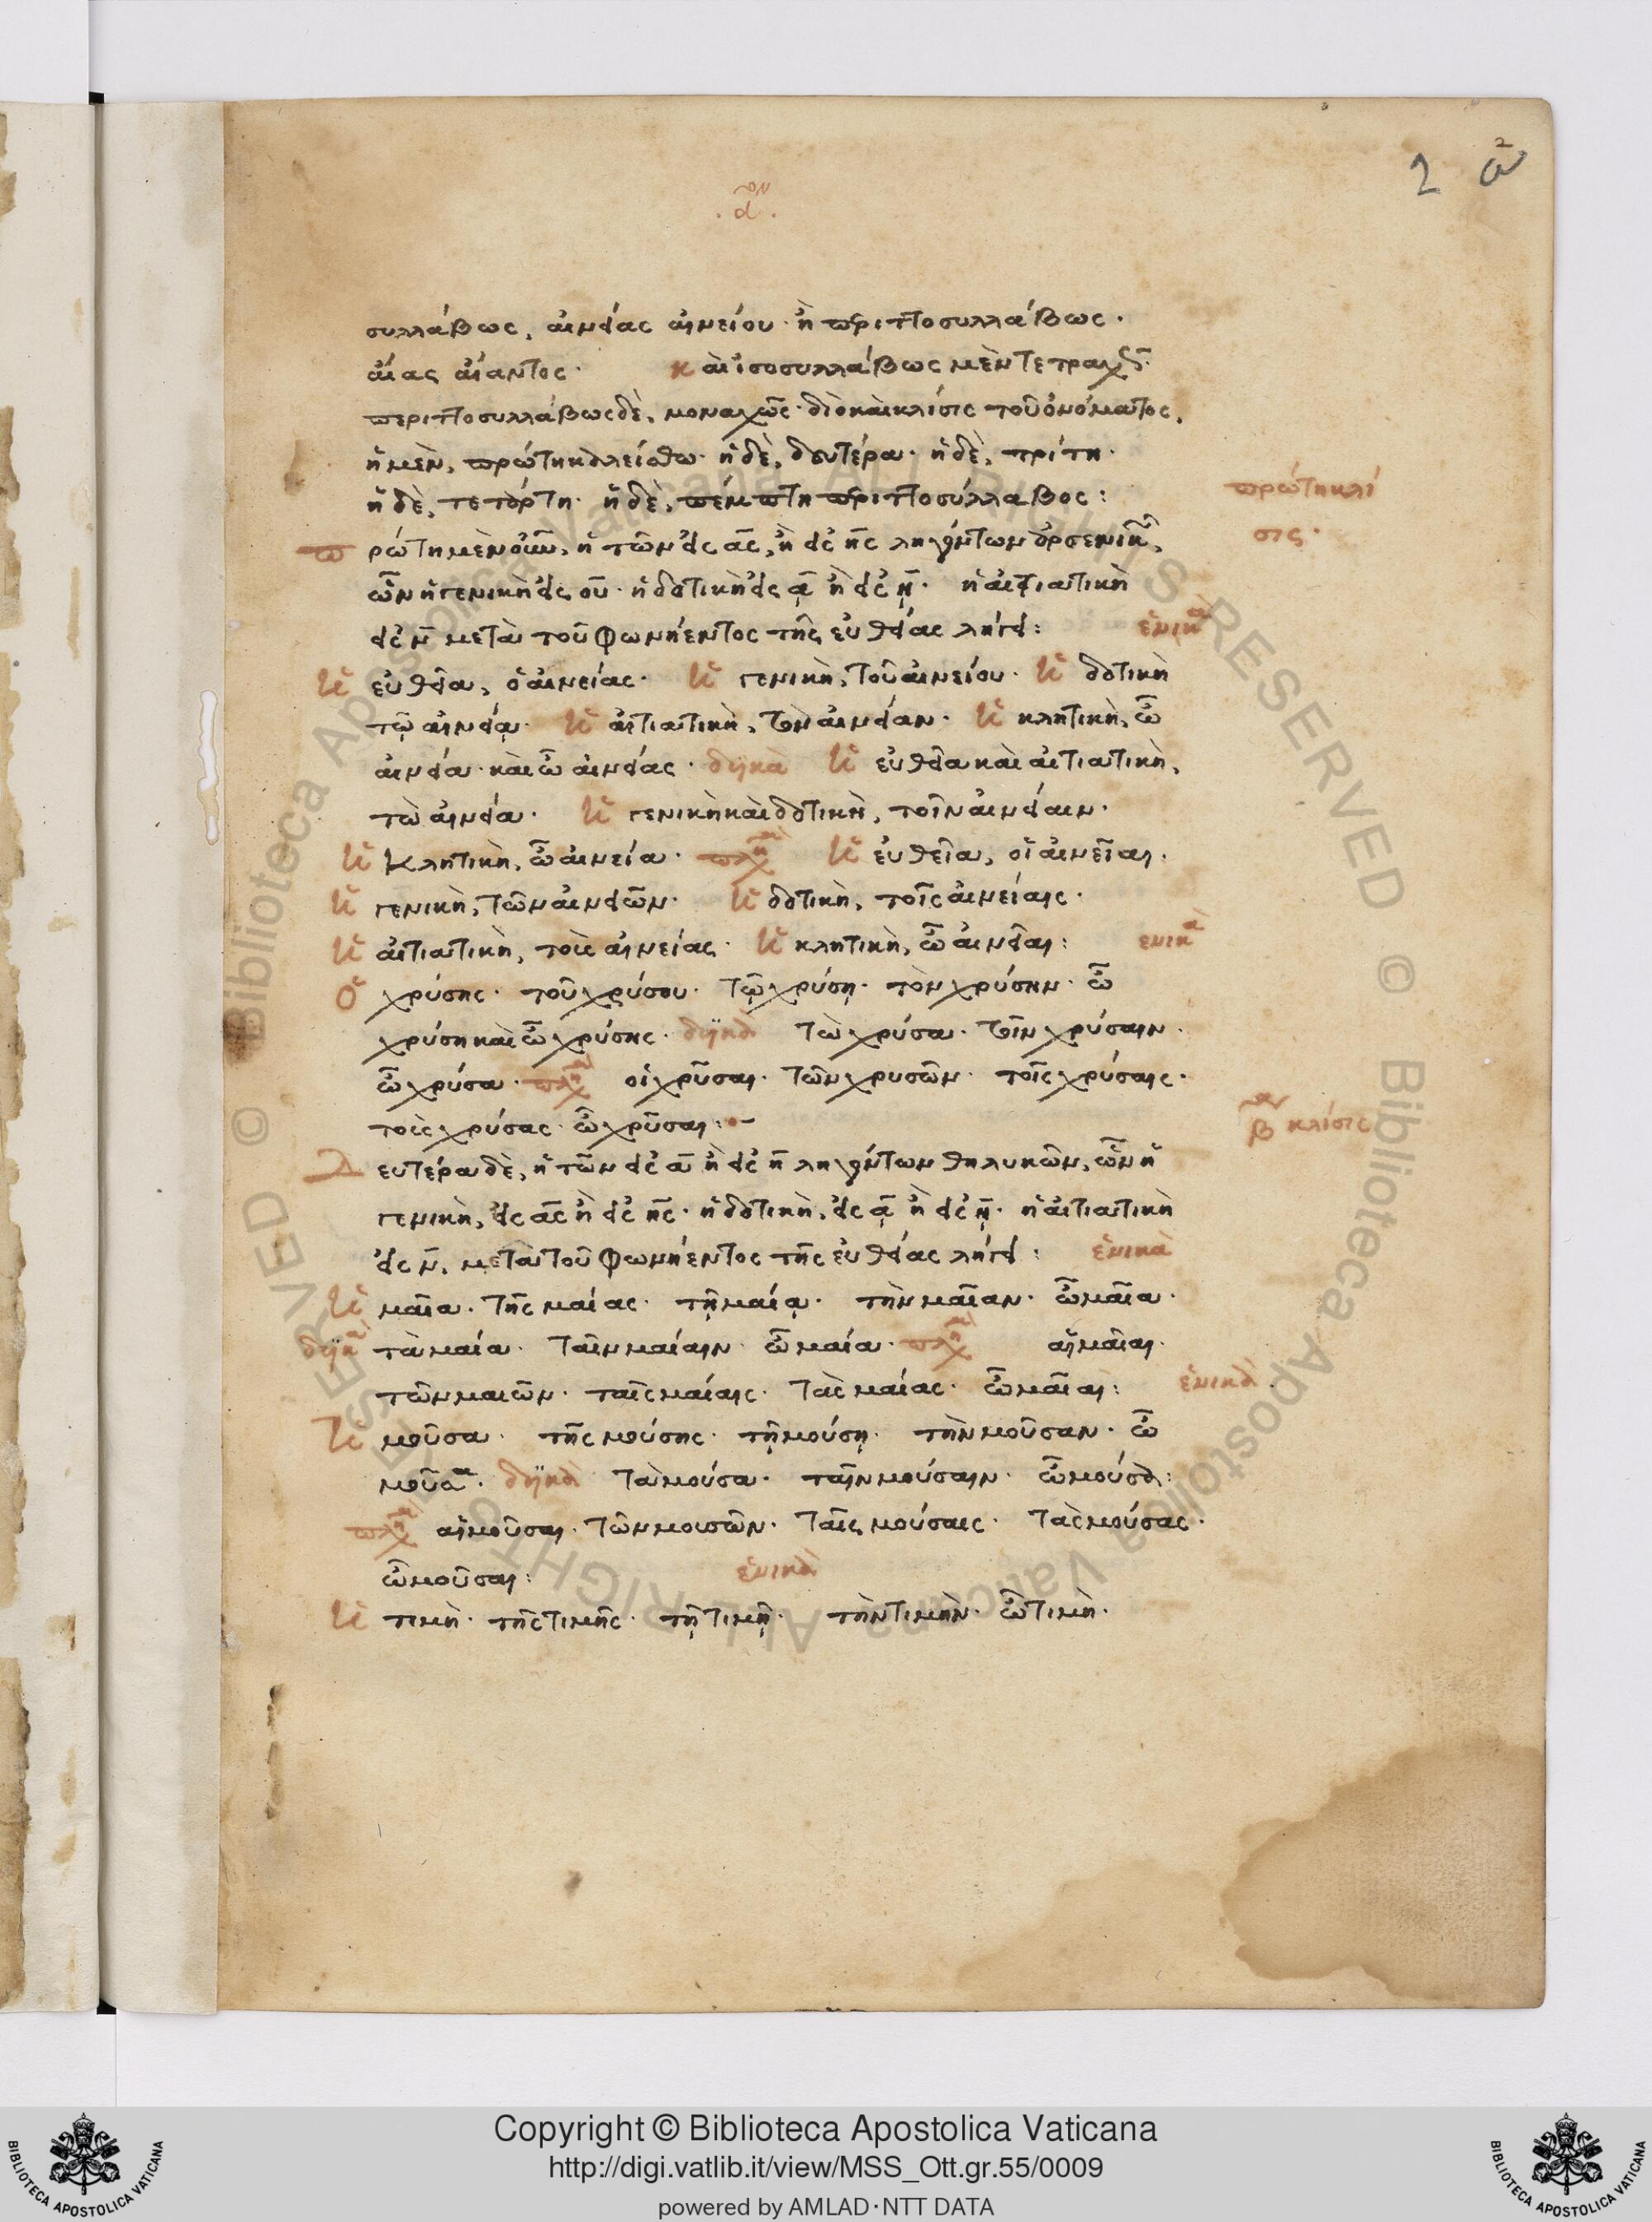 2 α
.α ον.
συλλάβως, αἰνείας αἰνείου· ἢ περιττοσυλλάβως·
αἴας αἴαντος· καὶ ἰσοσυλλάβως μὲν τετραχῶς·
περιττοσυλλάβως δὲ, μοναχῶς· διὸ καὶ κλίσις τοῦ ὀνόματος,
ἡ μὲν, πρώτη καλείσθω· ἡ δὲ, δευτέρα· ἡ δὲ, τρίτη·
ἡ δὲ, τετάρτη· ἡ δὲ, πέμπτη περιττοσύλλαβος:
πρώτη κλί
σις·
πρώτη μὲν οὖν, ἡ τῶν εἰς ας, ἢ εἰς ης ληγόντων ἀρσενικῶν,
ὧν ἡ γενικὴ εἰς ου· ἡ δοτικὴ εἰς ᾳ ἢ εἰς ῃ· ἡ αἰτιατικὴ
εἰς ν μετὰ τοῦ φωνήεντος τῆς εὐθείας λήγει: ἑνικὰ
ἡ εὐθεῖα, ὁ αἰνείας· ἡ γενικὴ, τοῦ αἰνείου· ἡ δοτικὴ
τῷ αἰνείᾳ· ἡ αἰτιατικὴ, τὸν αἰνείαν· ἡ κλητικὴ, ὦ
αἰνεία· καὶ ὦ αἰνείας· δυϊκὰ ἡ εὐθεῖα καὶ αἰτιατικὴ,
τὼ αἰνεία· ἡ γενικὴ καὶ δοτικὴ, τοῖν αἰνείαιν·
ἡ κλητικὴ, ὦ αἰνεία· πλη ἡ εὐθεῖα, οἱ αἰνεῖαι·
ἡ γενικὴ, τῶν αἰνειῶν· ἡ δοτικὴ, τοῖς αἰνείαις·
ἡ αἰτιατικὴ, τοὺς αἰνείας· ἡ κλητικὴ, ὦ αἰνεῖαι: ενικὰ
ὁ χρύσης· τοῦ χρύσου· τῷ χρύσῃ· τὸν χρύσην· ὦ
χρύση καὶ ὦ χρύσης· δυϊκὰ τὼ χρύσα· τοῖν χρύσαιν·
ὦ χρύσα· πλη οἱ χρῦσαι· τῶν χρυσῶν· τοῖς χρύσαις·
τοὺς χρύσας· ὦ χρῦσαι:
β α κλίσις
Δευτέρα δὲ, ἡ τῶν εἰς α ἢ εἰς η ληγόντων θηλυκῶν, ὧν ἡ
γενικὴ, εἰς ας ἢ εἰς ης· ἡ δοτικὴ, εἰς ᾳ ἢ εἰς ῃ· ἡ αἰτιατικὴ
εἰς ν, μετὰ τοῦ φωνήεντος τῆς εὐθείας λήγει: ἑνικὰ
ἡ μαῖα· τῆς μαίας· τῇ μαίᾳ· τὴν μαῖαν· ὦ μαῖα·
δυϊκὰ τὰ μαία· ταῖν μαίαιν· ὦ μαία· πλη αἱ μαῖαι·
τῶν μαιῶν· ταῖς μαίαις· τὰς μαίας· ὦ μαῖαι: ἑνικὰ
ἡ μοῦσα· τῆς μούσης· τῇ μούσῃ· τὴν μοῦσαν· ὦ
μοῦσα· δυϊκὰ τὰ μούσα· ταῖν μούσαιν· ὦ μούσα:
πλη αἱ μοῦσαι· τῶν μουσῶν· ταῖς μούσαις· τὰς μούσας·
ὦ μοῦσαι: ἑνικὰ
ἡ τιμὴ· τῆς τιμῆς· τῇ τιμῇ· τὴν τιμὴν· ὦ τιμὴ·
Copyright © Biblioteca Apostolica Vaticana
http://digi.vatlib.it/view/MSS_Ott.gr.55/0009
powered by AMLAD·NTT DATA